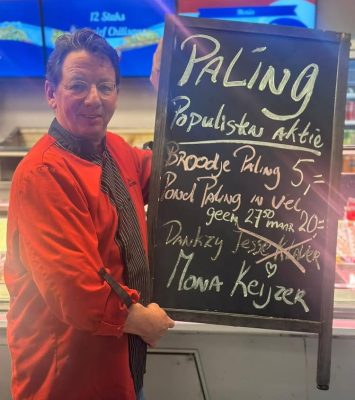 12 Stuks
PALING
Populisten Aktie
Broodje Paling 5,=
Pond Paling in vel
geen 27.50 maar 20=
Dankzy Jesse Klaver
Mona Keijzer